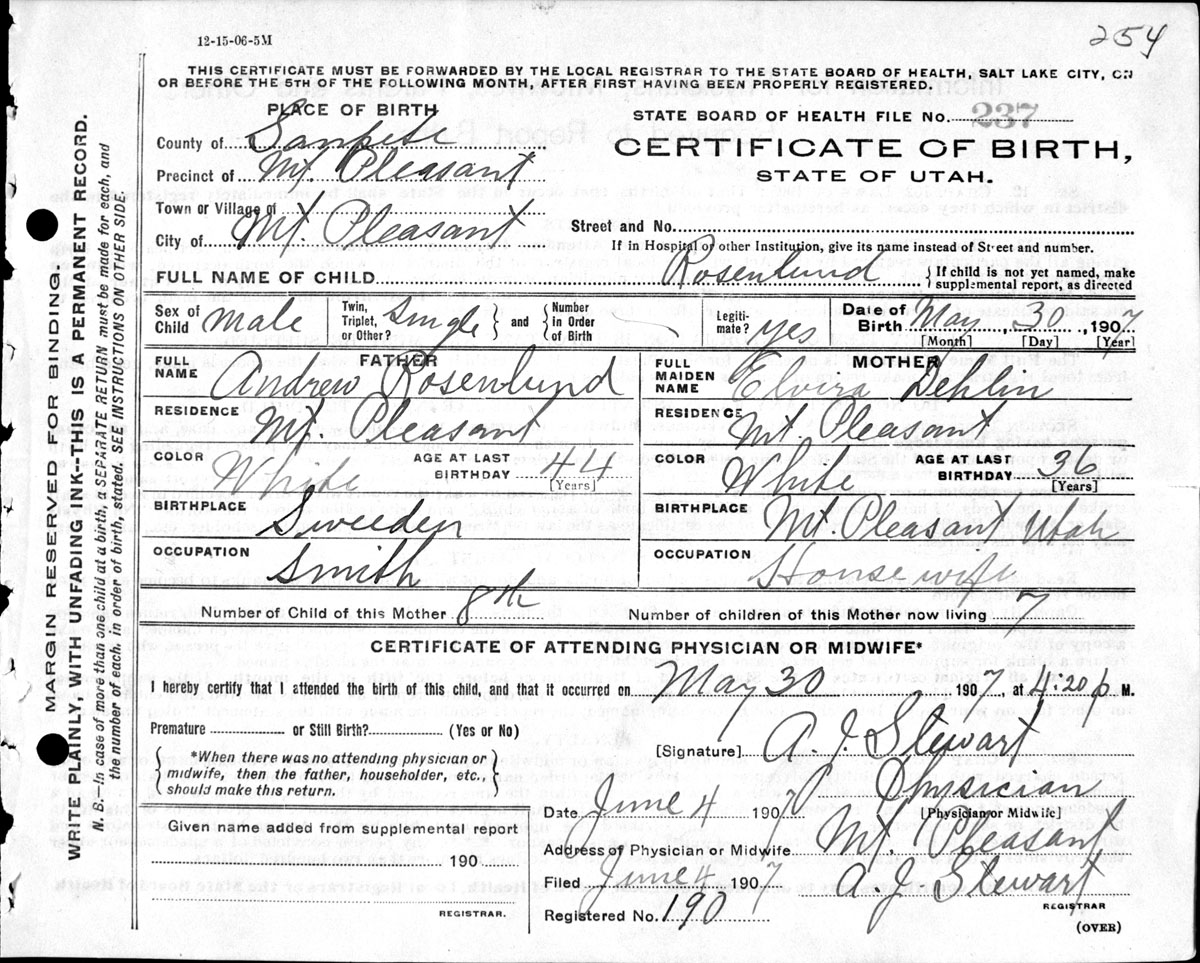 12-15-06-5M
254
THIS CERTIFICATE MUST BE FORWARDED BY THE LOCAL REGISTRAR TO THE STATE BOARD OF HEALTH, SALT LAKE CITY, ON
OR BEFORE THE 5TH OF THE FOLLOWING MONTH, AFTER FIRST HAVING BEEN PROPERLY REGISTERED.
PLACE OF BIRTH
STATE BOARD OF HEALTH FILE No. 237
County of Sanpete
CERTIFICATE OF BIRTH,
STATE OF UTAH.
Precinct of Mt. Pleasant
Town or Village of
Street and No.
City of Mt. Pleasant
If in Hospital or other Institution, give its name instead of Street and number.
FULL NAME OF CHILD Rosenlund
If child is not yet named, make
supplemental report, as directed
Sex of Child male
Twin, Triplet, or Other? Single and Number in Order of Birth
Legitimate? yes
Date of Birth May 30 1907
[Month] [Day] [Year]
FATHER
FULL NAME Andrew Rosenlund
RESIDENCE Mt. Pleasant
COLOR White
AGE AT LAST BIRTHDAY 44
[Years]
BIRTHPLACE Sweeden
OCCUPATION Smith
MOTHER
FULL MAIDEN NAME Elvira Dehlin
RESIDENCE Mt Pleasant
COLOR White
AGE AT LAST BIRTHDAY 36
[Years]
BIRTHPLACE Mt. Pleasant Utah
OCCUPATION House wife
Number of Child of this Mother 8th
Number of children of this Mother now living 7
CERTIFICATE OF ATTENDING PHYSICIAN OR MIDWIFE*
I hereby certify that I attended the birth of this child, and that it occurred on May 30 1907, at 4:20 p M.
Premature or Still Birth? (Yes or No)
*When there was no attending physician or
midwife, then the father, householder, etc.,
should make this return.
[Signature] A. J. Stewart
Physician
[Physician or Midwife]
Date June 4 1907
Address of Physician or Midwife Mt. Pleasant
Given name added from supplemental report
190
REGISTRAR.
Filed June 4 1907 A. J. Stewart
REGISTRAR
Registered No. 190
(OVER)
MARGIN RESERVED FOR BINDING.
WRITE PLAINLY, WITH UNFADING INK--THIS IS A PERMANENT RECORD.
N. B. In case of more than one child at a birth, a SEPARATE RETURN must be made for each, and
the number of each, in order of birth, stated. SEE INSTRUCTIONS ON OTHER SIDE.